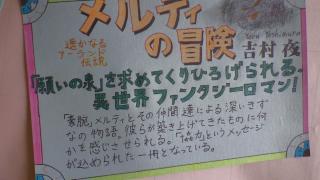 メルティ
の冒険
Yoru Yoshimura
吉村 夜
遥かなる
アーランド
伝説
「願いの泉」を求めてくりひろげられる、
異世界ファンタジーロマン!
メルティとその仲間達による深いきず
なの物語。彼らが築き上げてきたものに何
かを感じさせられる。
というメッセージ
が込められた一冊となっている。